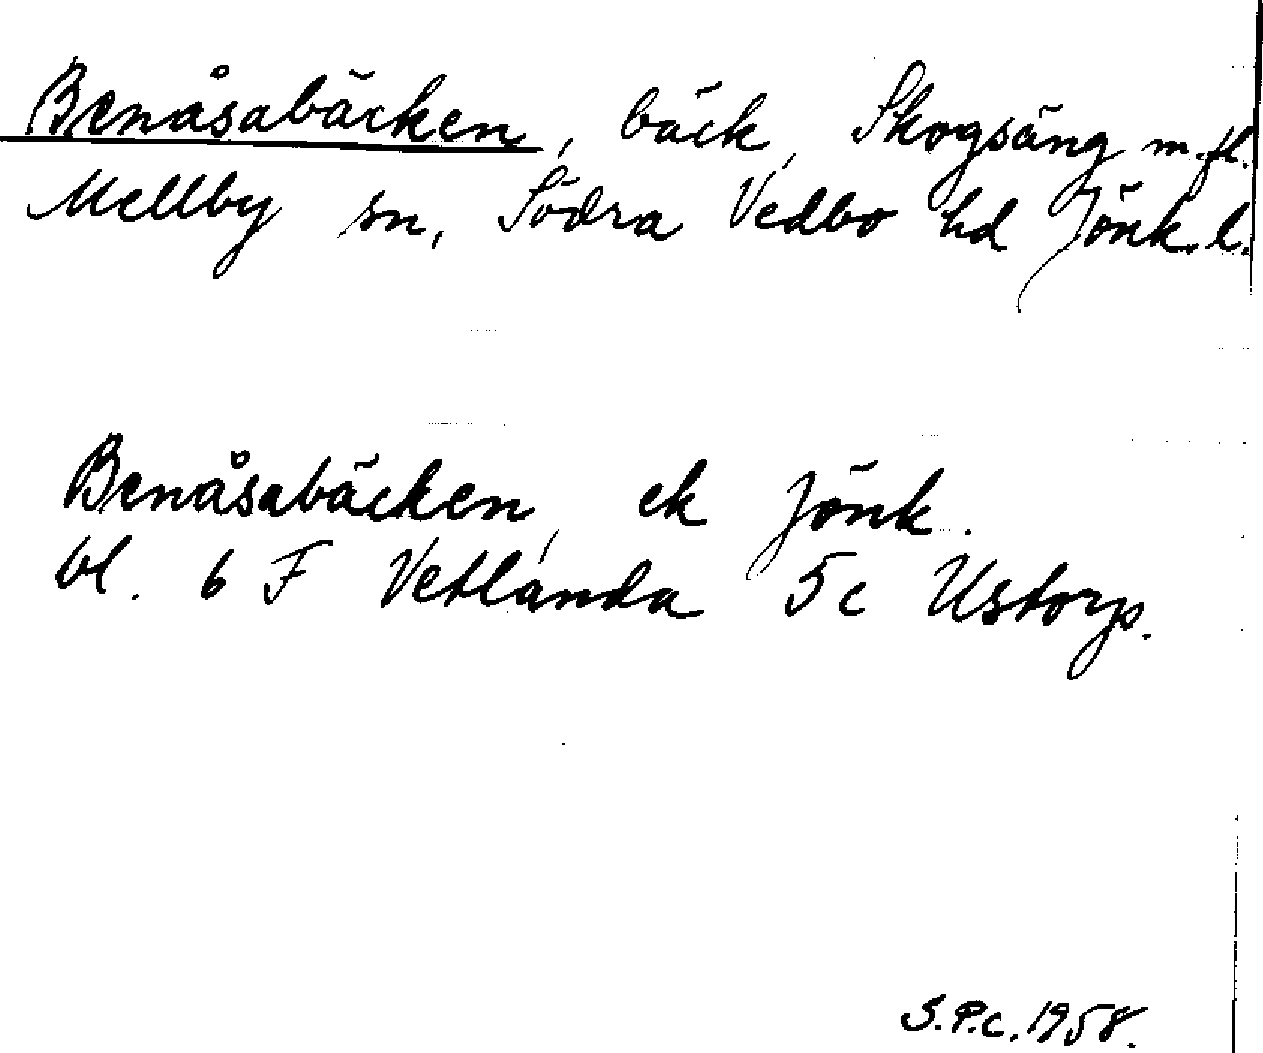 Benåsabäcken, bäck, Skogsäng m.fl.
Mellby sn, Södra Vedbo hd Jönk.l.
Benåsabäcken, ek Jönk.
bl. 6 F Vetlanda 5c Ustorp.
S.P.C. 1958.